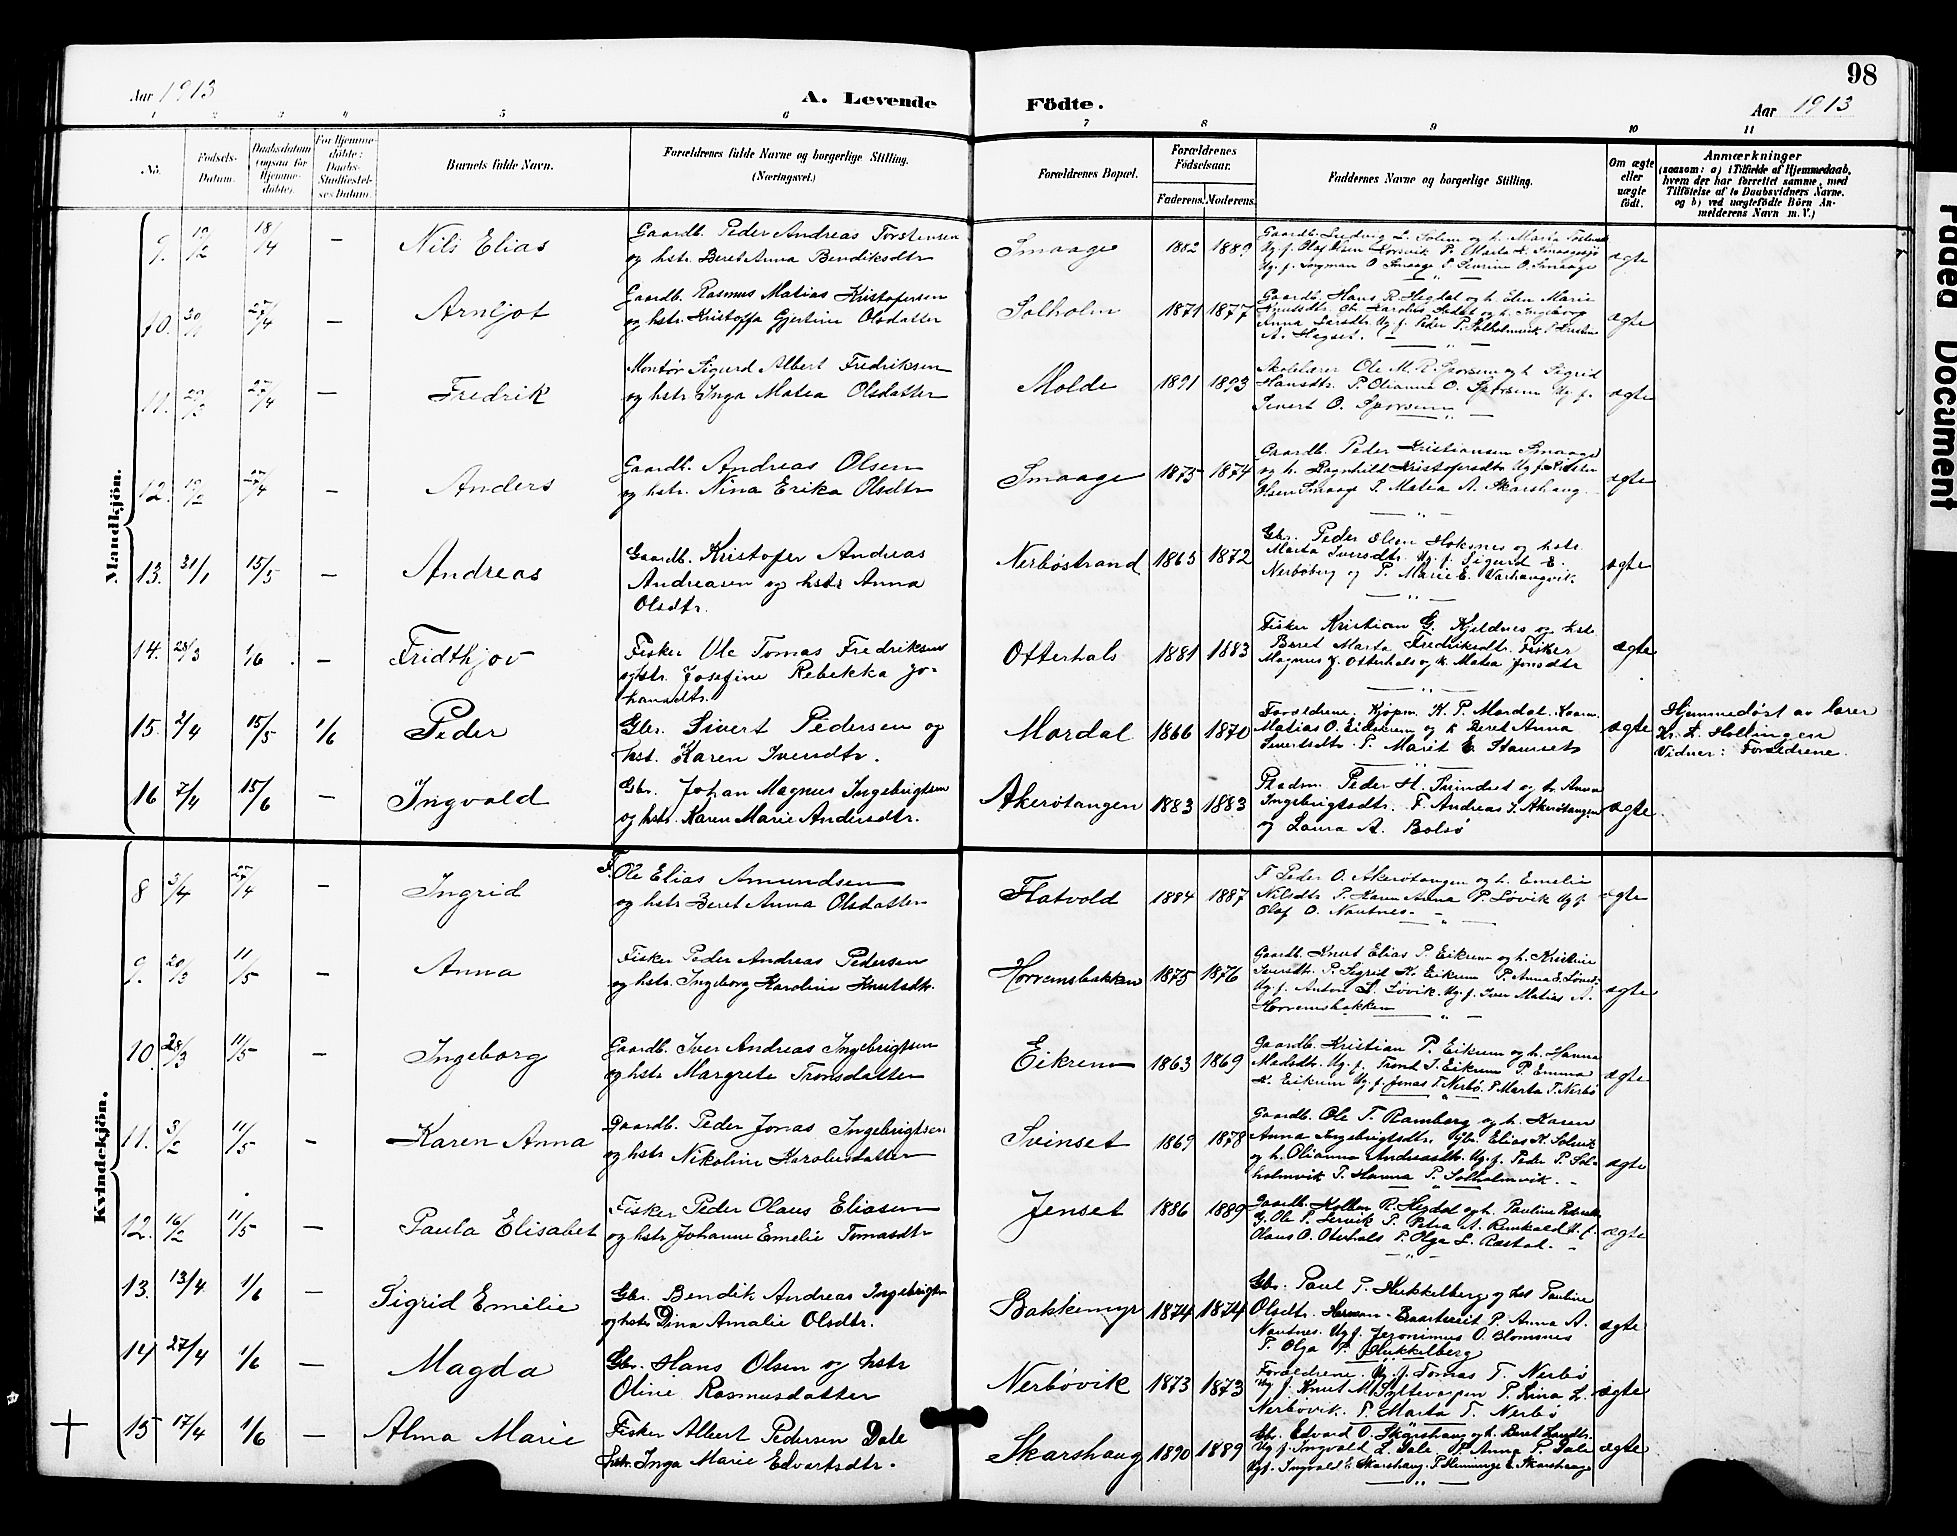 98
Aar 1913
A. Levende
Födte.
Aar 1913
1 2 3 4 5 6 7 8 9 10 11
No.
Födsels-
Datum.
Daabsdatum
(ogsaa for
Hjemme-
döbte).
For Hjemme-
döbte:
Daabs-
Stadfæstel-
ses Datum.
Barnets fulde Navn.
Forældrenes fulde Navne og borgerlige Stilling.
(Næringsvei.)
Forældrenes Bopæl.
Forældrenes
Födselsaar.
Faderens. Moderens.
Faddernes Navne og borgerlige Stilling.
Om ægte
eller
uægte
födt.
Anmærkninger
(saasom: a) i Tilfælde af Hjemmedaab,
hvem der har forrettet samme, med
Tilföielse af to Daabsvidners Navne,
og b) ved uægtefödte Börn An-
melderens Navn m. V.)
Mandkjön.
9. 19/2 18/14 – Nils Elias
Gaardb. Peder Andreas Torstensen
og hstr. Beret Anna Bendiksdtr
Smaage 1882 1889
Gaardb. Ludvig L. Solem og h. Maria
ægte
10. 27/4 – Arnljot
Gaardb. Rasmus Matias Kristofersen
og hstr. Kristoffa Gjertine Olsdatter
Solholm 1871 1877
Gaardb. Hans R. Hegdal og h. Elen Marie
A. Hegset.
ægte
11. 29/3 27/4 – Fredrik
Montör Sigurd Albert Fredriksen
og hstr. Inga Matea Olsdatter
Molde 1891 1893
Skolelærer Ole M. R. Sporsem og h. Sigrid
Hansdtr. P. Olianna O. Sporsem Ug. f.
Sivert O. Sporsem
ægte
12. 19/2 27/4 – Anders
Gaardb. Andreas Olsen
og hstr. Nina Erika Olsdtr
Smaage 1875 1874
Gaardb. Peder Kristiansen Smaage
og h. Ragnhild Kristofersdtr Ug. f. Peder
Olsen Smaage P. Matea A. Skarshaug
ægte
13. 31/1 15/5 – Andreas
Gaardb. Kristofer Andreas
Andreasen og hstr Anna
Olsdtr.
Nerböstrand 1865 1872
Gbr. Peder Olsen Hoksnes og hstr.
Marta Iversdtr. Ug. f. Sigurd E.
Nerböberg og P. Marie E. Varhaugvik
ægte
14. 28/3 1/6 – Fridthjov
Fisker Ole Tomas Fredriksen
og hstr. Josefine Rebekka Jo-
hansdtr.
Otterhals 1881 1883
Fisker Kristian G. Kjeldnes og hst.
Beret Marta Fredriksdtr. Fisker
Magnus J. Otterhals og h. Matea Jonsdtr
ægte
15. 2/4 15/5 1/6 Peder
Gbr. Sivert Pedersen og
hst. Karen Iversdtr.
Mordal 1866 1870
Forældrene. Kjøpm. K. P. Mordal.
Matias O. Eidskrem og h. Beret Anna
Sivertsdtr. P. Marit E. Stavset
ægte
Hjemmedøpt av lærer
Kr. L. Hollingen
Vidner: Forældrene.
16 7/4 15/6 – Ingvald
Gbr. Johan Magnus Ingebrigtsen
og hstr. Karen Marie Andersdtr.
Akerötangen 1883 1883
Pladsm. Peder H. Tarindset og h. Anna
Ingebrigtsdtr. F. Andreas J. Akerötangen
og Laura A. Bolsö
ægte
Kvindekjön.
8 3/4 27/4 – Ingrid
F. Ole Elias Amundsen
og hstr Beret Anna Olsdatter
Flatvold 1884 1887
F. Peder O. Akerötangen og h. Emelie
Nilsdtr P. Karen Anna P. Lövik Ug. f.
Olaf O. Nautnes.
ægte
9. 20/3 11/5 – Anna
Fisker Peder Andreas Pedersen
og hstr. Ingeborg Karoline Knutsdtr.
Horremsbakken 1875 1876
Gaardb. Knut Elias P. Eikrem og h. Kristine
Iversdtr. P. Sigrid K. Eikrem
Ug. f. Anton L. Lövik. Ug. f. Iver Matias A.
Horremsbakken
ægte
10. 28/3 11/5 – Ingeborg
Gaardb. Iver Andreas Ingebrigtsen
og hstr Margrete Tronsdatter
Eikrem 1863 1869
Gaardb. Kristian P. Eikrem og h. Hanna
Madsdtr. Ug. f. Trond I. Eikrem P. Emma
K. Eikrem Ug. f. Jonas T. Nerbö. P. Marta T. Nerbö
ægte
11. 3/2 11/5 – Karen Anna
Gaardb. Peder Jonas Ingebrigtsen
og hstr Nikoline Karolusdatter
Svinset 1869 1878
Gaardb. Ole T. Ramberg og h. Karen
Anna Ingebrigtsdtr. Gbr. Elias K. Solvik
og h. Olianna Andreasdtr. Ug. f. Peder P. Sol-
holmvik P. Hanna P. Solholmvik.
ægte
12. 16/2 11/5 – Paula Elisabet
Fisker Peder Olaus Eliasen
og hstr Johanne Emelie Tomasdtr
Jenset 1886 1889
Olaus O. Oterhals P. Olga L. Ræstad.
ægte
13. 13/4 1/6 – Sigrid Emelie
Gbr. Bendik Andreas Ingebrigtsen
og hstr Dina Amalie Olsdtr.
Bakkemyr 1874 1874
Gbr. Paul P. Hukkelberg og hst Pauline
Olsdtr. Herman P. Anna A.
Nautnes. Ug. f. Jeronimus O. Blomsnes
P. Olga P. Hukkelberg
ægte
14 27/4 1/6 – Magda
Gbr. Hans Olsen og hstr
Oline Rasmusdatter
Nerbövik 1873 1873
Forældrene. Ug. f. Tomas T. Nerbö
Ug. f. Knut M. Syltevorpen P. Rina L.
Nerbövik. P. Marta T. Nerbö
ægte
15 17/4 1/6 – Alma Marie
Fisker Albert Pedersen Dale
hstr. Inga Marie Edvartsdtr.
Skarshaug 1890 1889
Gbr. Edvard O. Skarshaug og h. Beret
Ug. f. Ingvald L. Dale. P. Anna P. Dale
Ug. f. Ingvald E. Skarshaug. P. Henninge E. Skarshaug
ægte
Faded Document